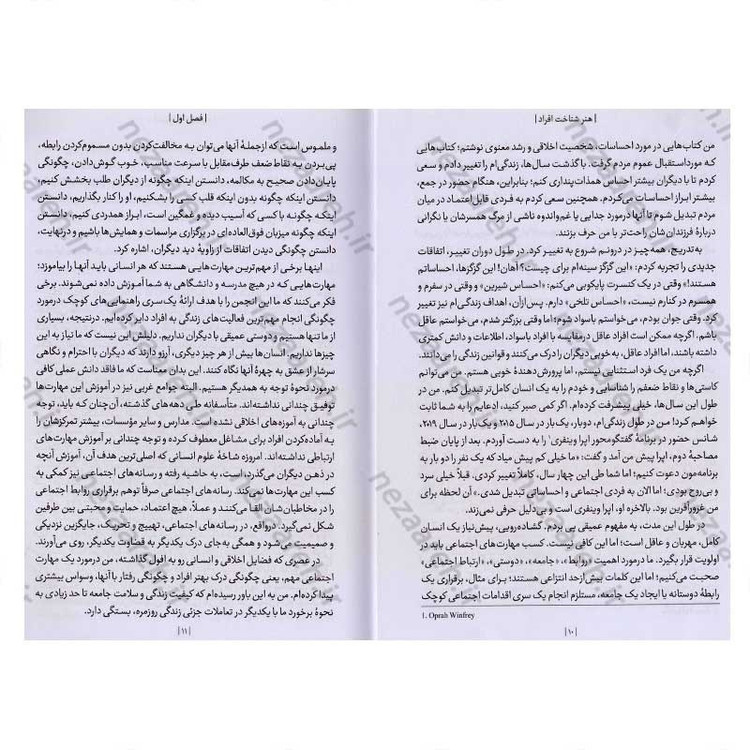 | هنر شناخت افراد |
من کتاب‌هایی در مورد احساسات، شخصیت اخلاقی و رشد معنوی نوشتم؛ کتاب‌هایی
که مورداستقبال عموم مردم گرفت. با گذشت سال‌ها، زندگی‌ام را تغییر دادم و سعی
کردم تا با دیگران بیشتر احساس همذات‌پنداری کنم؛ بنابراین، هنگام حضور در جمع،
بیشتر ابراز احساسات می‌کردم. همچنین سعی کردم به فردی قابل‌اعتماد در میان
مردم تبدیل شوم تا آنها درمورد جدایی یا غم‌واندوه ناشی از مرگ همسرشان یا نگرانی
دربارهٔ فرزندان‌شان راحت‌تر با من حرف بزنند.
به‌تدریج، همه‌چیز در درونم شروع به تغییر کرد. در طول دوران تغییر، اتفاقات
جدیدی را تجربه کردم: «این گزگز سینه‌ام برای چیست؟ آهان! این گزگزها، احساساتم
هستند!» وقتی در یک کنسرت پایکوبی می‌کنم: «احساس شیرین» و وقتی در سفرم و
همسرم در کنارم نیست، «احساس تلخی» دارم. پس‌ازآن، اهداف زندگی‌ام نیز تغییر
کرد. وقتی جوان بودم، می‌خواستم باسواد شوم؛ اما وقتی بزرگتر شدم، می‌خواستم عاقل
باشم. اگرچه ممکن است افراد عاقل درمقایسه با افراد باسواد، اطلاعات و دانش کمتری
داشته باشند، اما افراد عاقل، به خوبی دیگران را درک می‌کنند و قوانین زندگی را می‌دانند.
اگرچه من یک فرد استثنایی نیستم، اما پرورش‌دهندهٔ خوبی هستم. من می‌توانم
کاستی‌ها و نقاط ضعفم را شناسایی و خودم را به یک انسان کامل‌تر تبدیل کنم. من در
طول این سال‌ها، خیلی پیشرفت کرده‌ام. اگر کمی صبر کنید، ادعایم را به شما ثابت
خواهم کرد! من در طول زندگی‌ام، دوبار، یک‌بار در سال ۲۰۱۵ و یک‌بار در سال ۲۰۱۹،
شانس حضور در برنامهٔ گفتگومحور اپرا وینفری¹ را به دست آوردم. بعد از پایان ضبط
مصاحبهٔ دوم، اپرا پیش من آمد و گفت: «ما خیلی کم پیش میاد که یک نفر را دو بار به
برنامه‌مون دعوت کنیم؛ اما شما طی این چهار سال، کاملاً تغییر کردی. قبلاً خیلی سرد
و بی‌روح بودی؛ اما الان به فردی اجتماعی و احساساتی تبدیل شدی.» آن لحظه برای
من غرورآفرین بود. بالاخره او، اپرا وینفری است و بی‌دلیل حرفی نمی‌زند.
در طول این مدت، به مفهوم عمیقی پی بردم. گشاده‌رویی، پیش‌نیاز یک انسان
کامل، مهربان و عاقل است؛ اما این کافی نیست. کسب مهارت‌های اجتماعی باید در
اولویت قرار بگیرد. ما درمورد اهمیت «روابط»، «جامعه»، «دوستی»، «ارتباط اجتماعی»
صحبت می‌کنیم؛ اما این کلمات بیش‌ازحد انتزاعی هستند؛ برای مثال، برقراری یک
رابطهٔ دوستانه یا ایجاد یک جامعه، مستلزم انجام یک سری اقدامات اجتماعی کوچک
1. Oprah Winfrey
| ۱۰ |
| فصل اول |
و ملموس است که ازجملهٔ آنها می‌توان به مخالفت‌کردن بدون مسموم‌کردن رابطه،
پی‌بردن به نقاط ضعف طرف‌مقابل با سرعت مناسب، خوب گوش‌دادن، چگونگی
پایان‌دادن صحیح به مکالمه، دانستن اینکه چگونه از دیگران طلب بخشش کنیم،
دانستن اینکه چگونه بدون اینکه قلب کسی را بشکنیم، او را کنار بگذاریم، دانستن
اینکه چگونه با کسی که آسیب دیده و غمگین است، ابراز همدردی کنیم، دانستن
اینکه چگونه میزبان فوق‌العاده‌ای در برگزاری مراسمات و همایش‌ها باشیم و درنهایت،
دانستن چگونگی دیدن اتفاقات از زاویهٔ دید دیگران، اشاره کرد.
اینها برخی از مهم‌ترین مهارت‌هایی هستند که هر انسانی باید آنها را بیاموزد؛
مهارت‌هایی که در هیچ مدرسه و دانشگاهی به شما آموزش داده نمی‌شوند. برخی
فکر می‌کنند که ما این انجمن را با هدف ارائهٔ یک‌سری راهنمایی‌های کوچک درمورد
چگونگی انجام مهم‌ترین فعالیت‌های زندگی به افراد دایر کرده‌ایم. درنتیجه، بسیاری
از ما تنها هستیم و دوستی عمیقی با دیگران نداریم. دلیلش این نیست که ما نیاز به این
چیزها نداریم. انسان‌ها بیش از هر چیز دیگری، آرزو دارند که دیگران با احترام و نگاهی
سرشار از عشق به چهرهٔ آنها نگاه کنند. این بدان معناست که ما فاقد دانش عملی کافی
درمورد نحوهٔ توجه به همدیگر هستیم. البته جوامع غربی نیز در آموزش این مهارت‌ها
توفیق چندانی نداشته‌اند. متأسفانه طی دهه‌های گذشته، آن‌چنان که باید، توجه
چندانی به آموزه‌های اخلاقی نشده است. مدارس و سایر مؤسسات، بیشتر تمرکزشان را
به آماده‌کردن افراد برای مشاغل معطوف کرده و توجه چندانی بر آموزش مهارت‌های
ارتباطی نداشته‌اند. امروزه شاخهٔ علوم انسانی که اصلی‌ترین هدف آن، آموزش آنچه
در ذهن دیگران می‌گذرد، است، به حاشیه رفته و رسانه‌های اجتماعی نیز کمکی به
کسب این مهارت‌ها نمی‌کند. رسانه‌های اجتماعی صرفاً توهم برقراری روابط اجتماعی
را در مخاطبان‌شان القا می‌کنند و عملاً، هیچ اعتماد، حمایت و محبتی بین طرفین
شکل نمی‌گیرد. درواقع، در رسانه‌های اجتماعی، تهییج و تحریک، جایگزین نزدیکی
و صمیمیت می‌شود و همگی به‌جای درک یکدیگر به قضاوت یکدیگر، روی می‌آورند.
در عصری که فضایل اخلاقی و انسانی رو به افول گذاشته، من درمورد یک مهارت
اجتماعی مهم، یعنی چگونگی درک بهتر افراد و چگونگی رفتار با آنها، وسواس بیشتری
پیدا کرده‌ام. من به این باور رسیده‌ام که کیفیت زندگی و سلامت جامعه تا حد زیادی به
نحوهٔ برخورد ما با یکدیگر در تعاملات جزئی زندگی روزمره، بستگی دارد.
| ۱۱ |
nezabeh.ir